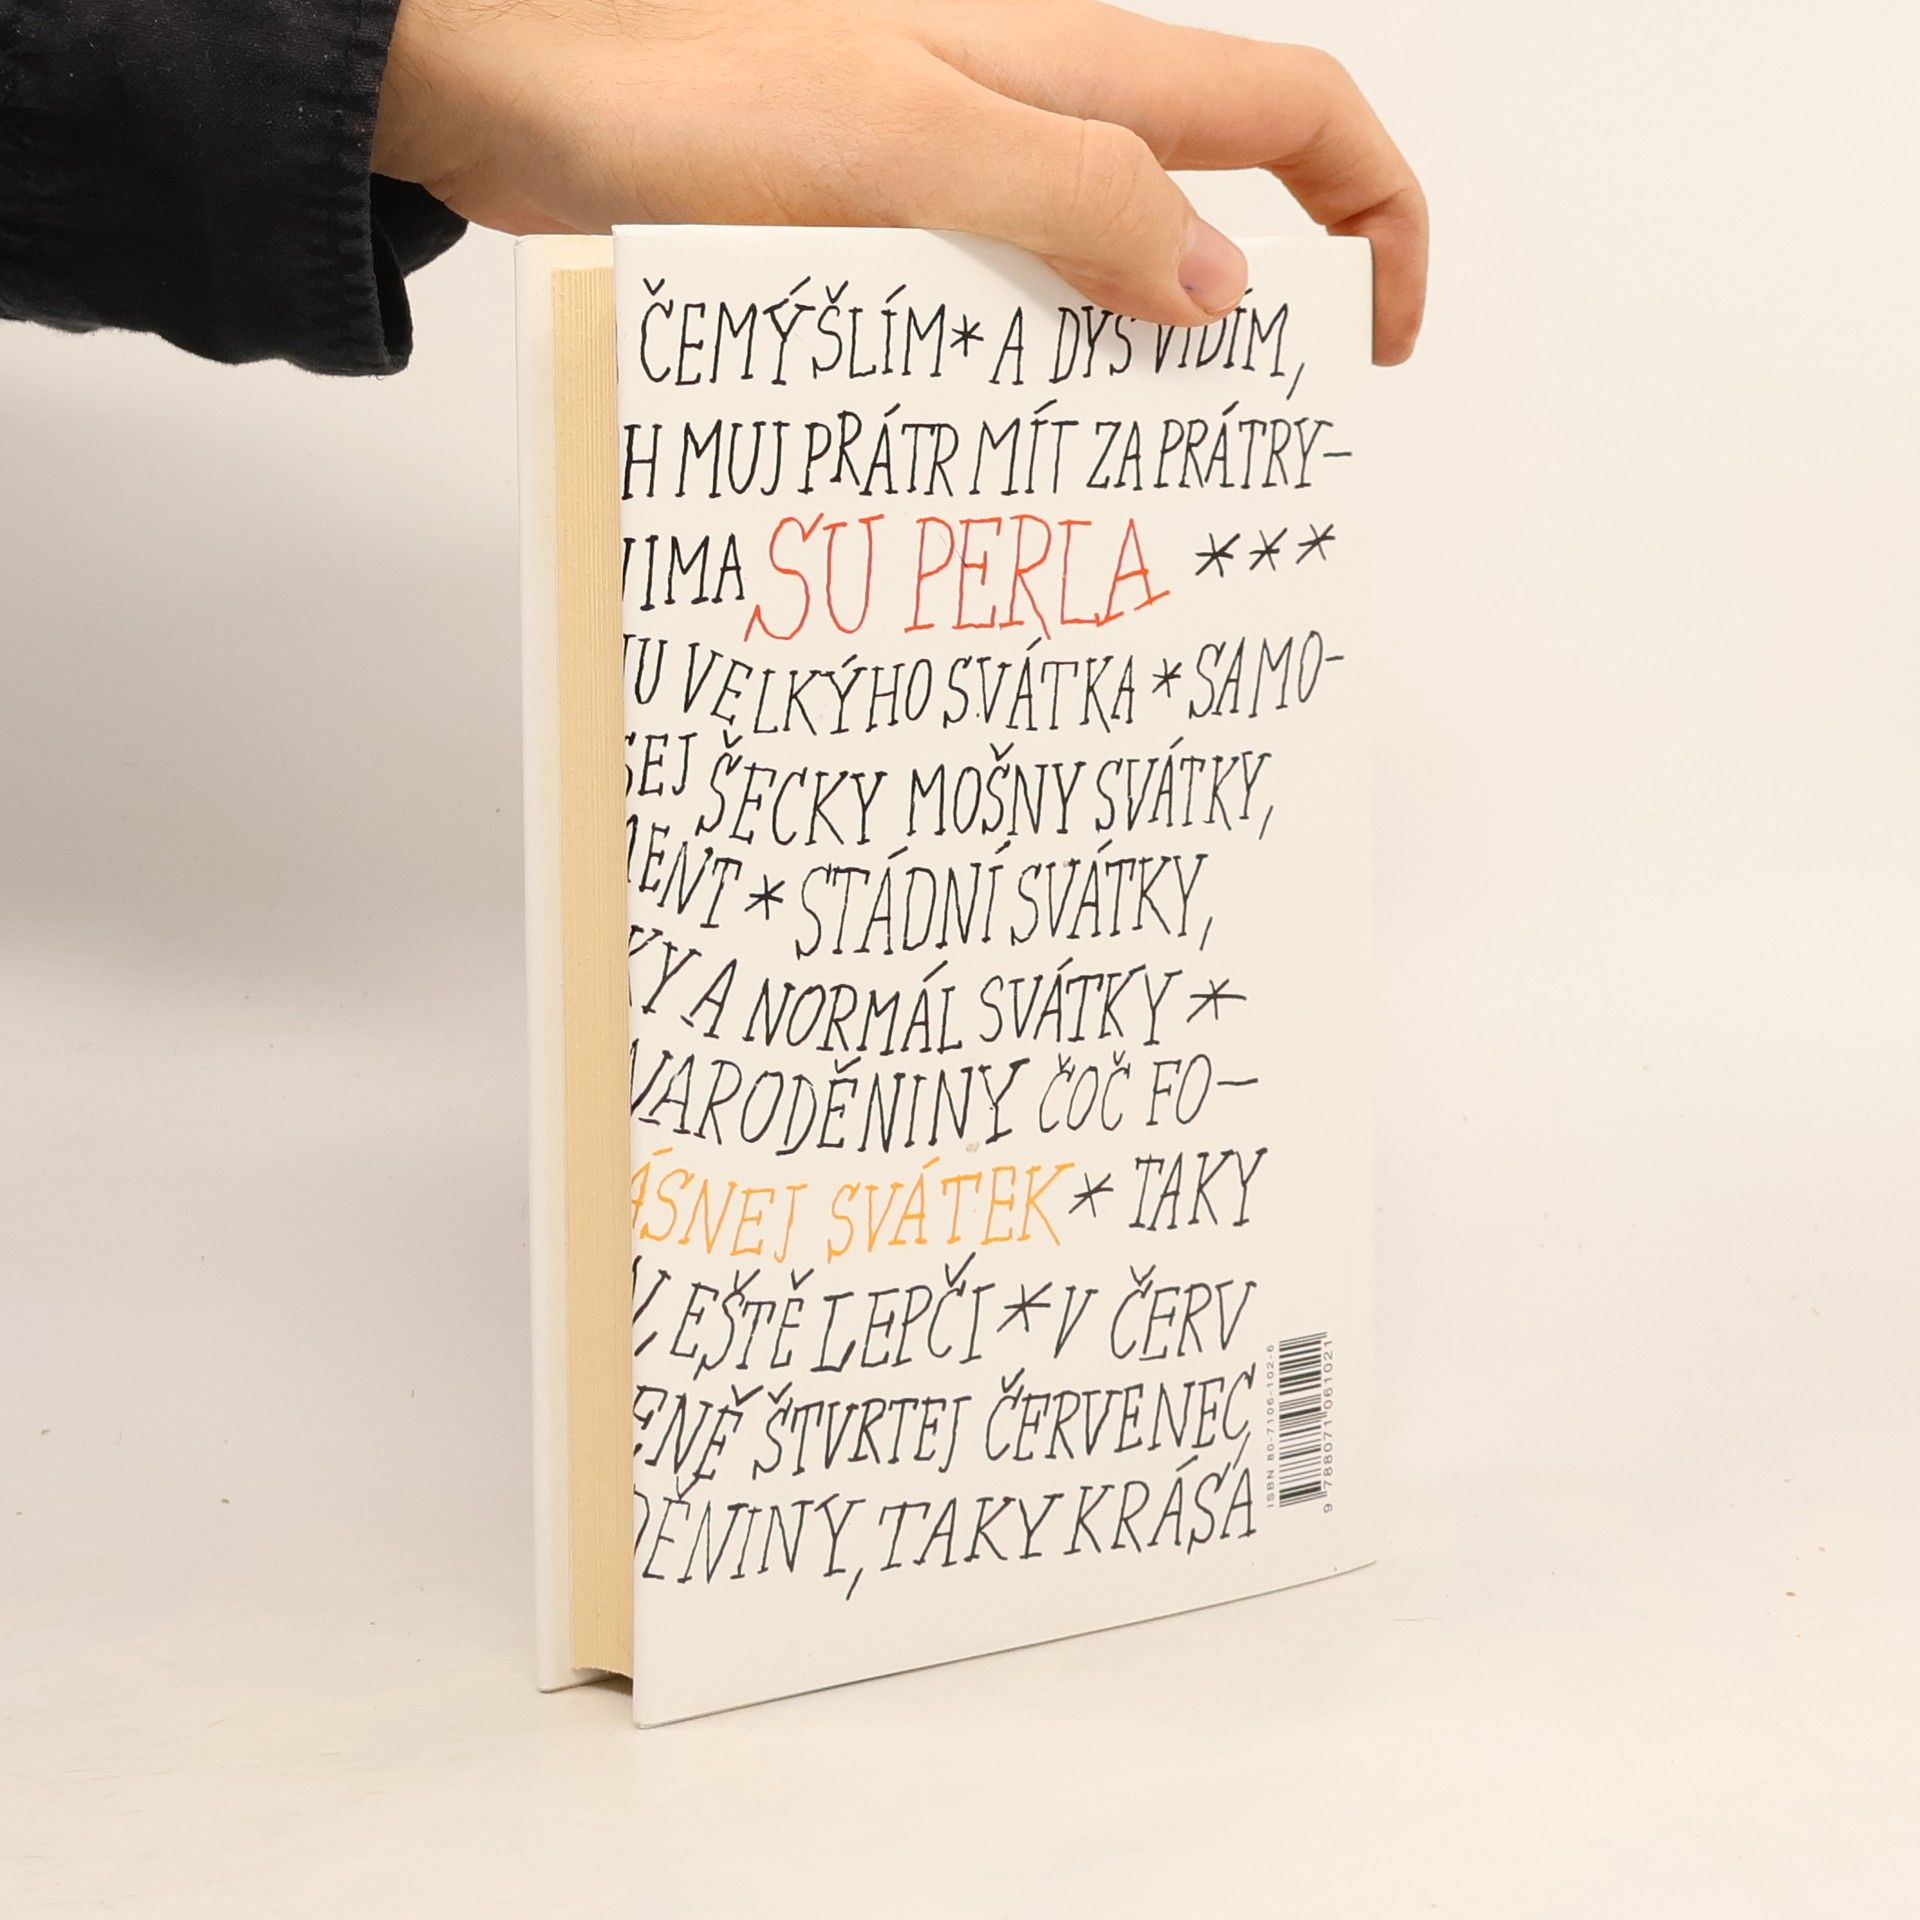 ČEMÝŠLÍM * A DYŠ VIDÍM,
H MUJ PRÁTR MÍT ZA PRÁTRY-
IMA SU PERLA ***
U VELKÝHO SVÁTKA * SAMO-
SEJ ŠECKY MOŠNY SVÁTKY,
MENT * STÁDNÍ SVÁTKY,
KY A NORMÁL SVÁTKY *
NARODĚNINY ČOČ FO-
ÁSNEJ SVÁTEK * TAKY
EŠTĚ LEPČI * V ČERV
ENĚ ŠTVRTEJ ČERVENEC,
DĚNINY, TAKY KRÁSÁ
ISBN 80-7106-102-6
9 788071 061021